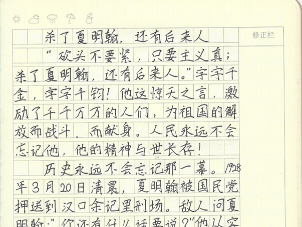 修正栏
杀了夏明翰，还有后来人
“砍头不要紧，只要主义真；
杀了夏明翰，还有后来人。”字字千
金，字字千钧！他这惊天之言，激
励了千千万万的人们，为祖国的解
放而战斗，而献身。人民永远不会
忘记他，他的精神与世长存！
历史永远不会忘记那一幕。1928
年3月20日清晨，夏明翰被国民党
押送到汉口余记里刑场。敌人问夏
明翰：“你还有什么话要说？”他从容